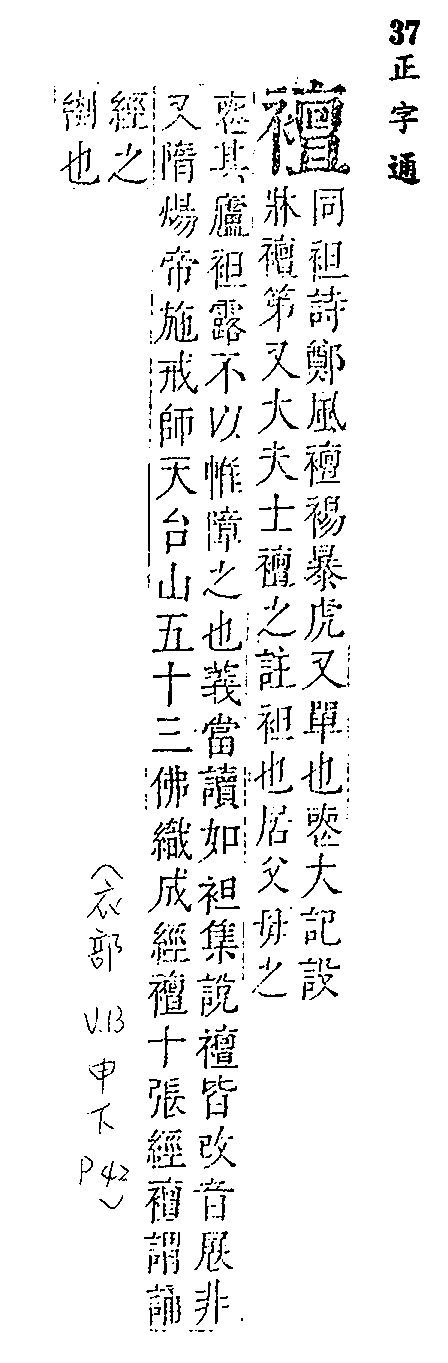 37 正字通
襢 同袒詩鄭風襢裼暴虎又單也喪大記設
牀襢第又大夫士襢之註袒也居父母之
喪其廬袒露不以帷障之也義當讀如袒集說襢皆改音展非
又隋煬帝施戒師天台山五十三佛織成經襢十張經襢謂誦
經之
衣部
V.13
申下
P42